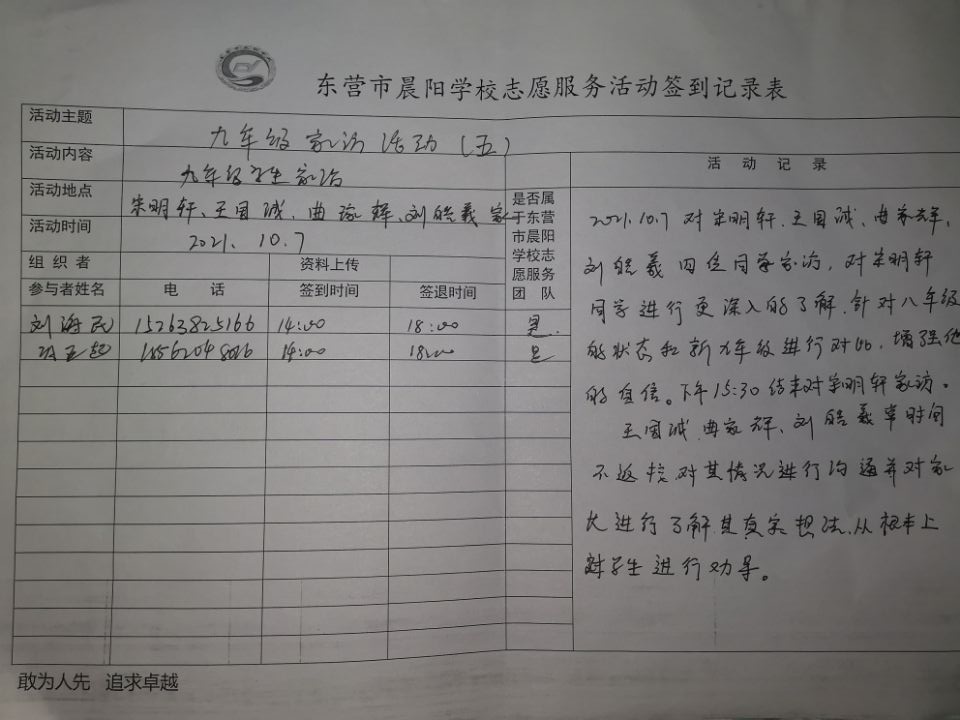 东营市晨阳学校志愿服务活动签到记录表
活动主题 九年级家访活动(五)
活动内容 九年级学生家访
活动地点 宋明轩、王国诚、曲家辉、刘皓羲家
活动时间 2021.10.7
组织者 资料上传
参与者姓名 电话 签到时间 签退时间
是否属
于东营
市晨阳
学校志
愿服务
团队
刘海民 15263825166 14:00 18:00 是.
14:00 18:00 是
活动记录
2021.10.7 对宋明轩、王国诚、曲家辉、
刘皓羲四位同学家访,对宋明轩
同学进行更深入的了解.针对八年级
的状态和新九年级进行对比,增强他
的自信。下午15:30结束对宋明轩家访。
王国诚、曲家辉、刘皓羲 时间
不返校对其情况进行沟通并对家
长进行了解其真实想法,从根本上
对学生进行劝导。
敢为人先 追求卓越